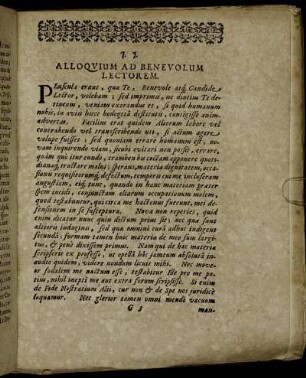 I. I.
ALLOQVIUM AD BENEVOLUM
LECTOREM.
Pluscula erant, qua Te, Benevole atq; Candide
Lector, volebam, sed imprimis, ne diutius Te de-
tineam, veniam exorandus es, si quid humanum
nobis, in viis hisce hodegeta destitutis, contigisse anim-
advertas. Facilius erat quidem Aliorum labore vel
contrahendo vel transferibendo uti, si actum agere
volupe fuisset: sed quoniam errare humanum est, no-
vam inquirendo viam, jacuti evitari nec posse, errores,
quin qui iter eundo, cramben bis coctam apponere quoti-
dianag, tractare malui: Speravi, materia dignitatem, occasi-
onis requisitorumq; defectum, temporis etiam inclusorum
angustiam, eig, tunc, quando in hanc materiam præter
spem incidi, conjunctam aliarum occupationum molem,
quod testabuntur, qui circa me hactenus fuerunt, mei de-
fensionem in se suscepturos. Nova non reperies, quid
enim dicatur nunc quin dictum prius sit; nec qua sunt
altioris indaginis, sed qua omnimodi curâ adhuc indigent
secundâ; formam tamen huic materia de meo sum largi-
tus, & penè divissem primus. Nam qui de hac materia
scripserit ex professo, ut opellâ hâc jamtum absolutâ in-
audio quidem, videre nondum licuit mihi. Nec move-
or sodalem me nactum esse, testabitur Ille pro me po-
tius, nihil inepti me aut extra forum scripsisse. Si enim
de Fide Nostratium Alii, cur non & de Spe nos juridicè
loquamur. Nec glorior tamen omni mendâ vacuum
G 3
man-